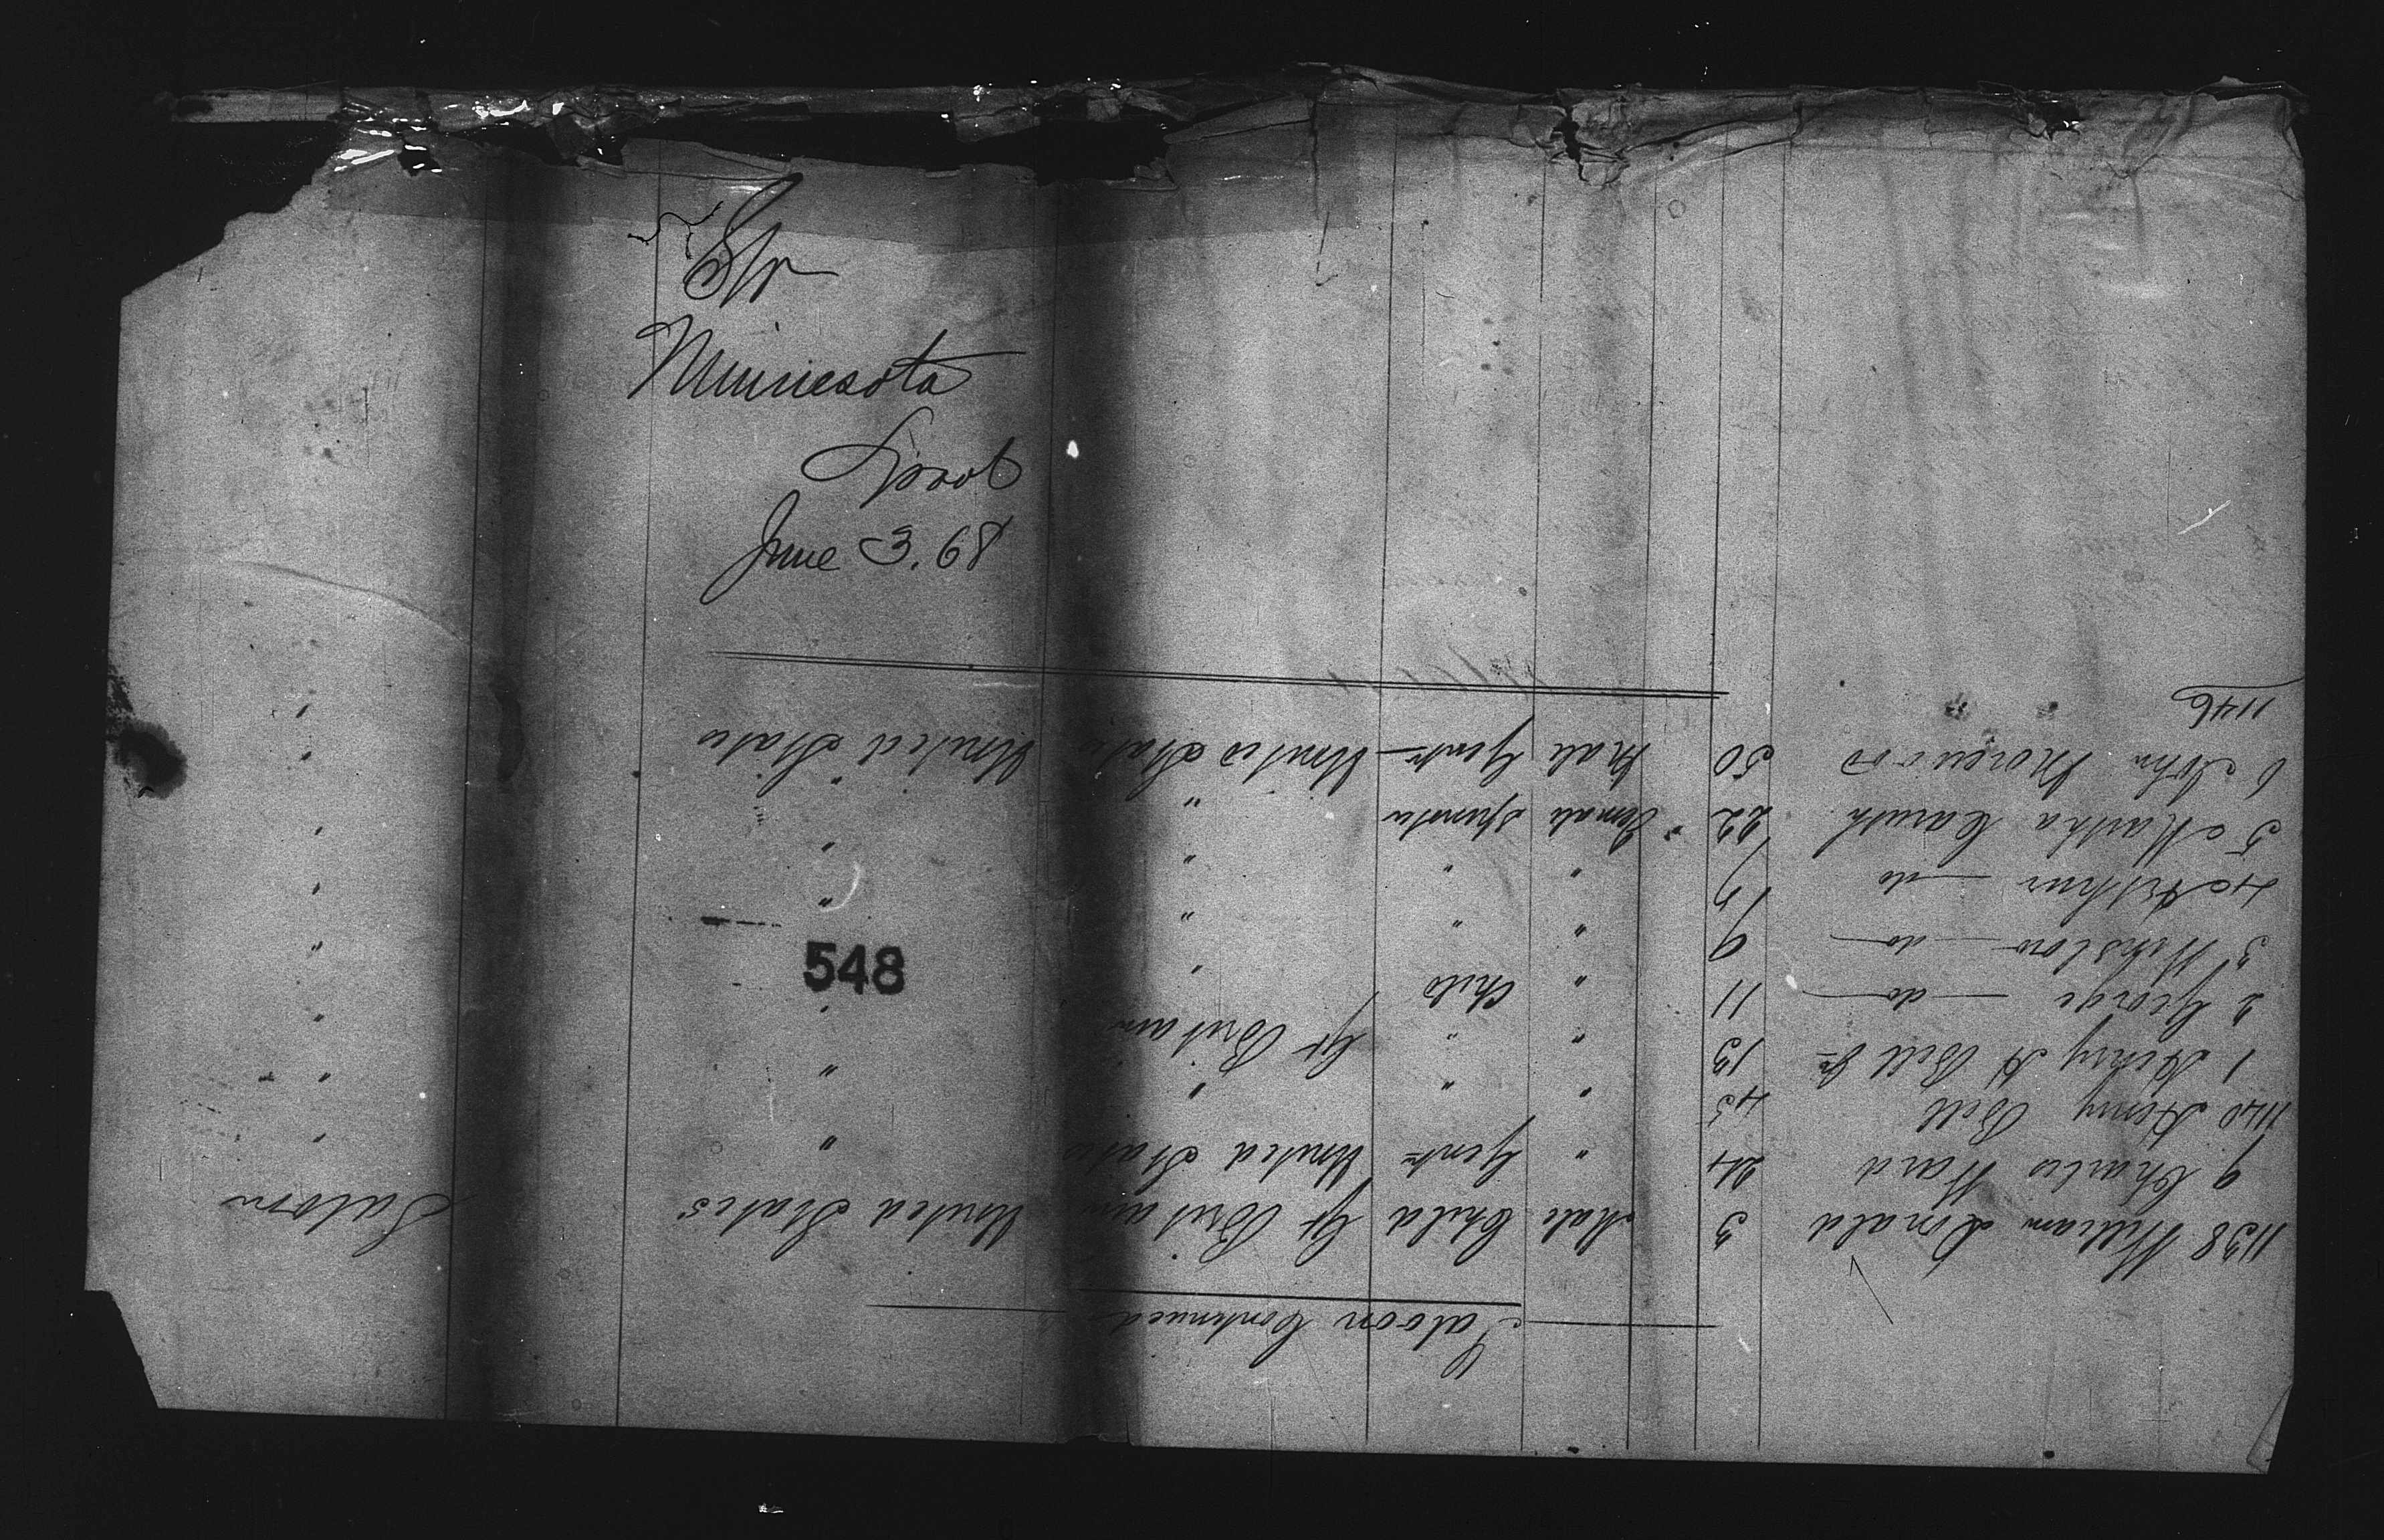 Str
Minnesota
Lpool
June 3. 68
548
Saloon Continued
1138 William Donald 3 Male Child Gt Britain United States Saloon
9 Charles Ward 24 " Gentn United States " "
1140 Henry Bill 45 " " " " "
1 Henry A Bill Jr 13 " " Gt Britain " "
2 George — do — 11 " Child " "
3 Winslow — do — 9 " " " " "
4 Arthur — do 7 " " " " "
5 Martha 22 Female Spinster " " "
6 John Morewood 50 Male Gentn United States United States "
1146